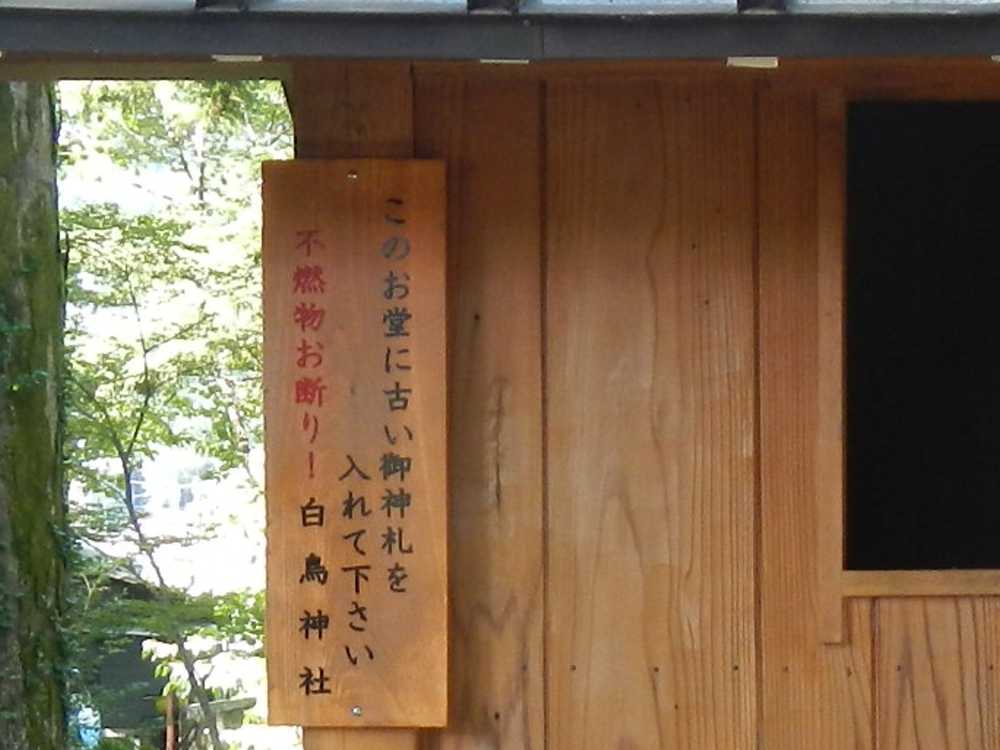 このお堂に古い御神札を
入れて下さい
不燃物お断り！白鳥神社